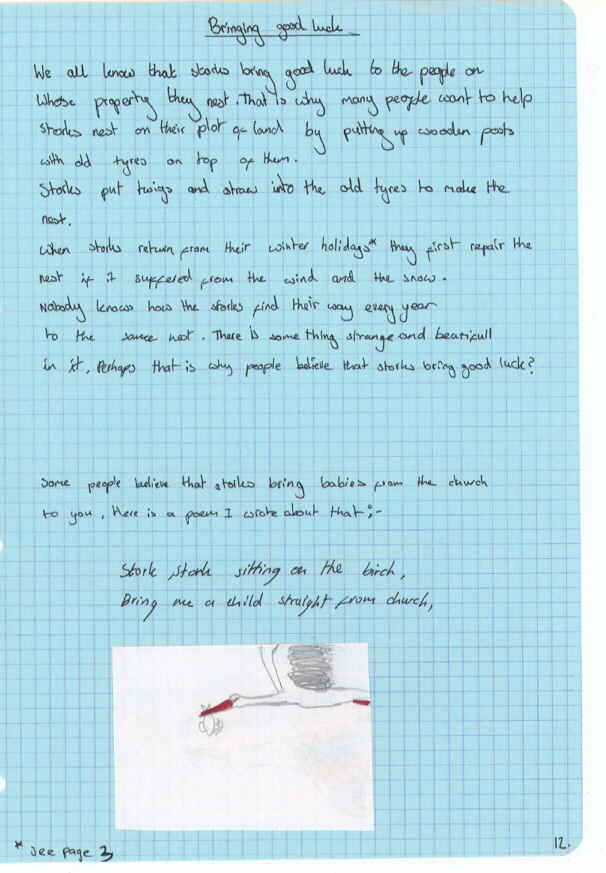 Bringing good luck
We all know that storks bring good luck to the people on
whose property they nest. That is why many people want to help
storks nest on their plot of land by putting up wooden posts
with old tyres on top of them.
Storks put twigs and straw into the old tyres to make the
nest.
When storks return from their winter holidays* they first repair the
nest if it suffered from the wind and the snow.
Nobody knows how the storks find their way every year
to the same nest. There is some thing strange and beatifull
in it. Perhaps that is why people believe that storks bring good luck?
Some people believe that storks bring babies from the church
to you. Here is a poem I wrote about that:-
Stork, stork sitting on the birch,
Bring me a child straight from church,
* see page 3
12.